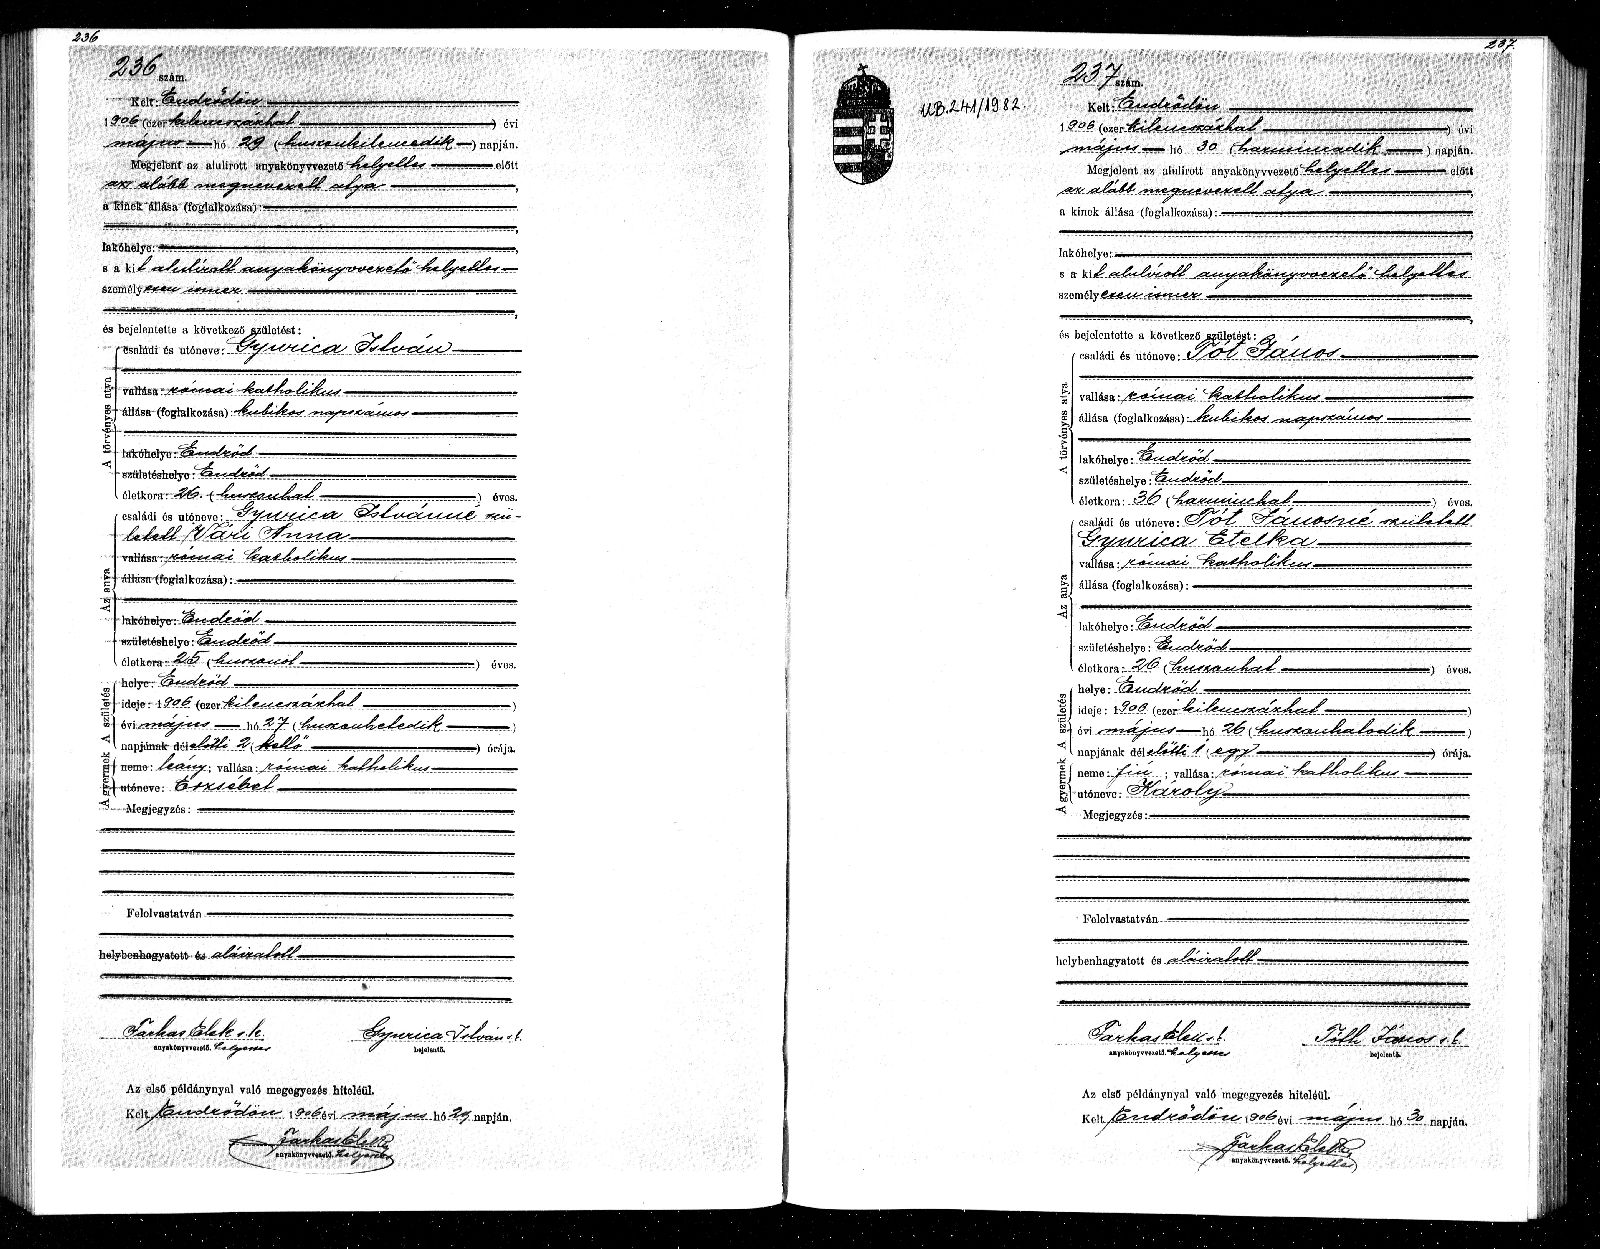 236
236 szám.
Kelt: Endrődön
1906 (ezer kilenczszázhat) évi
május hó 29 (huszonkilenczedik) napján.
Megjelent az alulirott anyakönyvvezető helyettes előtt
az alább megnevezett atya,
a kinek állása (foglalkozása):
lakóhelye:
s a kit alulírott anyakönyvvezető helyettes
személyesen ismer
és bejelentette a következő születést:
A törvényes atya
családi és utóneve: Gyurica István
vallása: római katholikus
állása (foglalkozása): kubikos napszámos
lakóhelye: Endrőd
születéshelye: Endrőd
életkora: 26. (huszonhat) éves.
Az anya
családi és utóneve: Gyurica Istvánné szü-
letett Vári Anna
vallása: római katholikus
állása (foglalkozása):
lakóhelye: Endrőd
születéshelye: Endrőd
életkora: 25 (huszonöt) éves.
A születés
helye: Endrőd
ideje: 1906 (ezer kilenczszázhat)
évi május hó 27 (huszonhetedik)
napjának délelőtti 2 (kettő) órája.
A gyermek
neme: leány; vallása: római katholikus
utóneve: Erzsébet
Megjegyzés:
Felolvastatván
helybenhagyatott és aláiratott
Farkas Elek s. k.
anyakönyvvezető. helyettes
Gyurica István s. k.
bejelentő.
Az első példánynyal való megegyezés hiteléül.
Kelt, Endrődön, 1906 évi május hó 29 napján.
Farkas Elek
anyakönyvvezető. helyettes
237.
UB. 241/1982.
237 szám.
Kelt: Endrődön
1906 (ezer kilenczszázhat) évi
május hó 30 (harminczadik) napján.
Megjelent az alulirott anyakönyvvezető helyettes előtt
az alább megnevezett atya,
a kinek állása (foglalkozása):
lakóhelye:
s a kit alulírott anyakönyvvezető helyettes
személyesen ismer
és bejelentette a következő születést:
A törvényes atya
családi és utóneve: Tót János
vallása: római katholikus
állása (foglalkozása): kubikos napszámos
lakóhelye: Endrőd
születéshelye: Endrőd
életkora: 36 (harminchat) éves.
Az anya
családi és utóneve: Tót Jánosné született
Gyurica Etelka
vallása: római katholikus
állása (foglalkozása):
lakóhelye: Endrőd
születéshelye: Endrőd
életkora: 26 (huszonhat) éves.
A születés
helye: Endrőd
ideje: 1906 (ezer kilenczszázhat)
évi május hó 26 (huszonhatodik)
napjának délelőtti 1 (egy) órája.
A gyermek
neme: fiú; vallása: római katholikus
utóneve: Károly
Megjegyzés:
Felolvastatván
helybenhagyatott és aláiratott
Farkas Elek s. k.
anyakönyvvezető. helyettes
Tóth János s. k.
bejelentő.
Az első példánynyal való megegyezés hiteléül.
Kelt, Endrődön 1906 évi május hó 30 napján.
Farkas Elek
anyakönyvvezető. helyettes